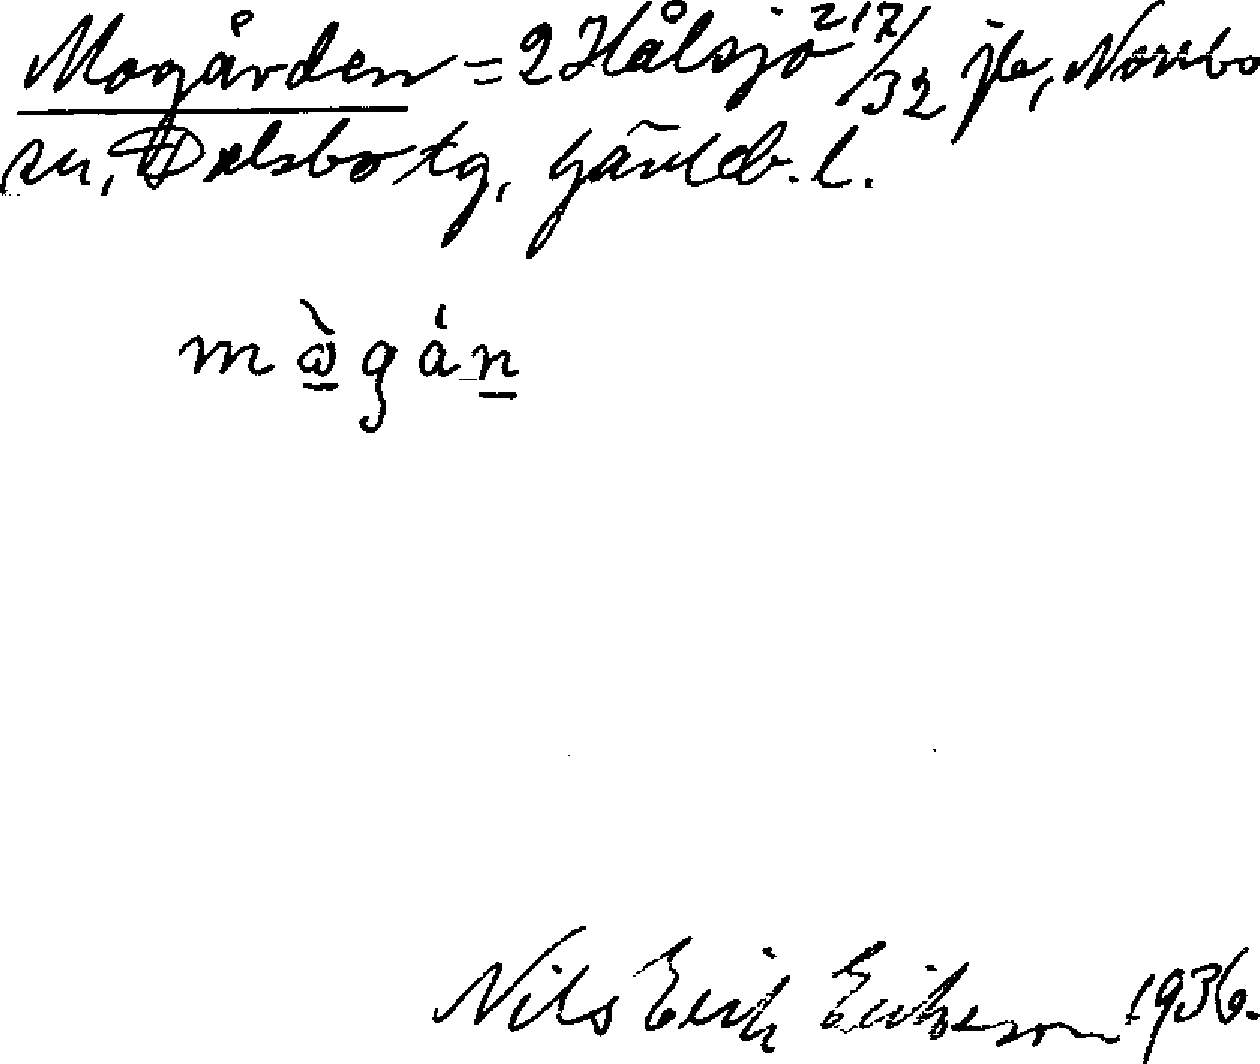 Mogården = 2 Hålsjö 2 17/32 jb, Norrbo
sn, Delsbo tg, Gävleb. l.
mɷ̀gán
Nils Erik Erikson 1936.